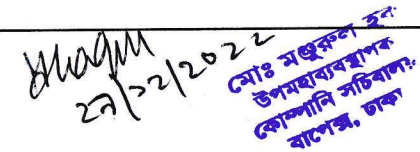 ২৭/১২/২০২২
মোঃ মঞ্জুরুল হক
উপমহাব্যবস্থাপক
কোম্পানি সচিবালয়
বাপেক্স, ঢাকা